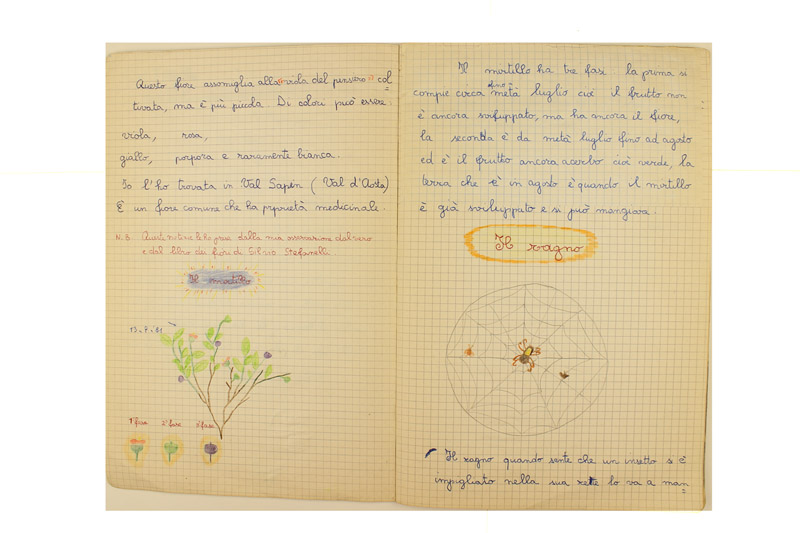 Questo fiore assomiglia alla viola del pensiero col
tivata, ma è più piccola. Di colori può essere:
viola, rosa,
giallo, porpora e raramente bianca.
Io l'ho trovata in Val Sapin (Val d'Aosta)
È un fiore comune che ha proprietà medicinale.
N.B. Queste notizie le ho prese dalla mia osservazione dal vero
e dal libro dei fiori di Silvio Stefanelli
Il mirtillo
1ª fase 2ª fase 3ª fase
Il mirtillo ha tre fasi la prima si
compie circa fino metà luglio cioè il frutto non
è ancora sviluppato, ma ha ancora il fiore,
la seconda è da metà luglio fino ad agosto
ed è il frutto ancora acerbo cioè verde, la
terza che è in agosto è quando il mirtillo
è già sviluppato e si può mangiare.
Il ragno
Il ragno quando sente che un insetto si è
impigliato nella sua rete lo va a man